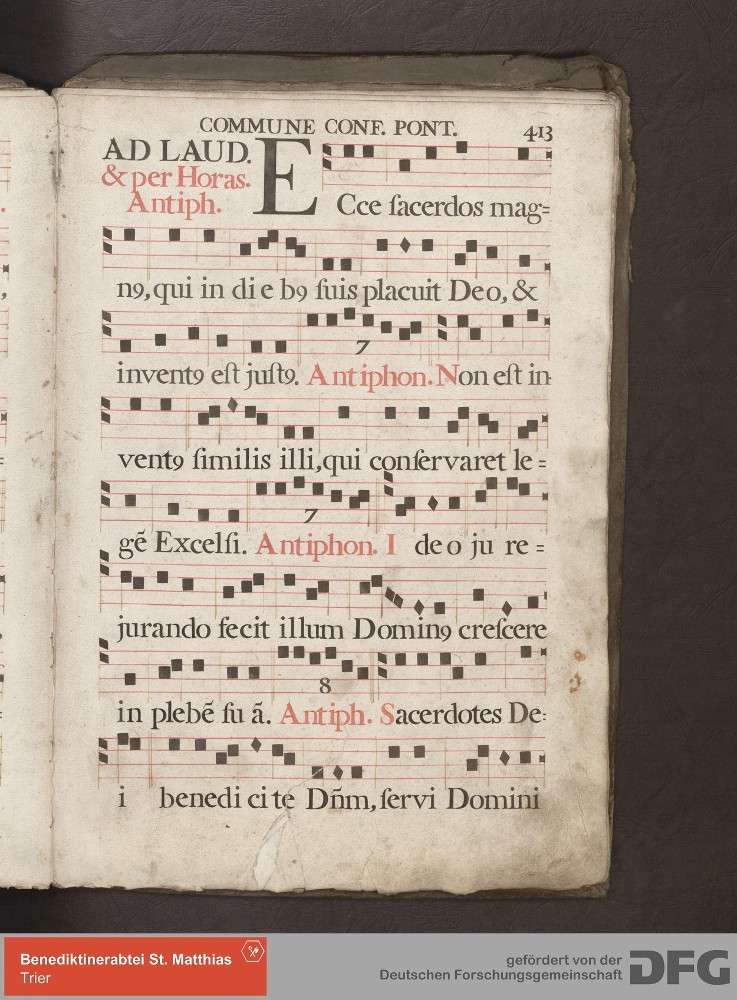 COMMUNE CONF. PONT. 413
AD LAUD.
& per Horas.
Antiph.
ECce ſacerdos mag=
nꝰ, qui in di e bꝰ ſuis placuit Deo, &
7
inventꝰ eſt juſtꝰ. Antiphon. Non eſt in
ventꝰ ſimilis illi, qui conſervaret le =
7
gē Excelſi. Antiphon. I deo ju re =
jurando fecit illum Dominꝰ creſcere
8
in plebē ſu ā. Antiph. Sacerdotes De=
i benedi ci te Dñm, ſervi Domini
Benediktinerabtei St. Matthias
Trier
gefördert von der
Deutschen Forschungsgemeinschaft
DFG